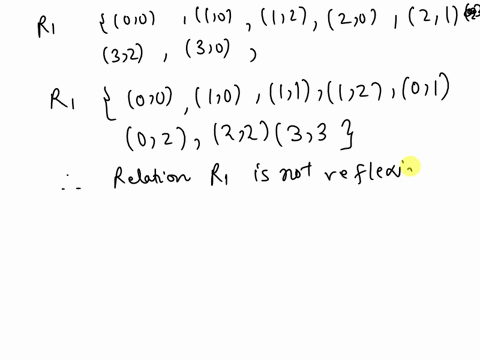 R1 {(0,0) , (1,0) , (1,2), (2,0) , (2,1)
(3,2) , (3,0) ,
R1 { (0,0) , (1,0) , (1,1) , (1,2) , (0,1)
(0,2) , (2,2) (3,3 }
∴ Relation R1 is not reflexi